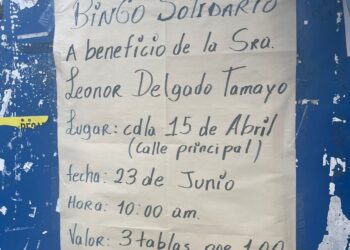 BINGO SOLIDARIO
A beneficio de la Sra.
Leonor Delgado Tamayo
Lugar: cdla 15 de Abril
(calle principal)
fecha: 23 de Junio
Hora: 10:00 am.
Valor: 3 tablas por 1,00